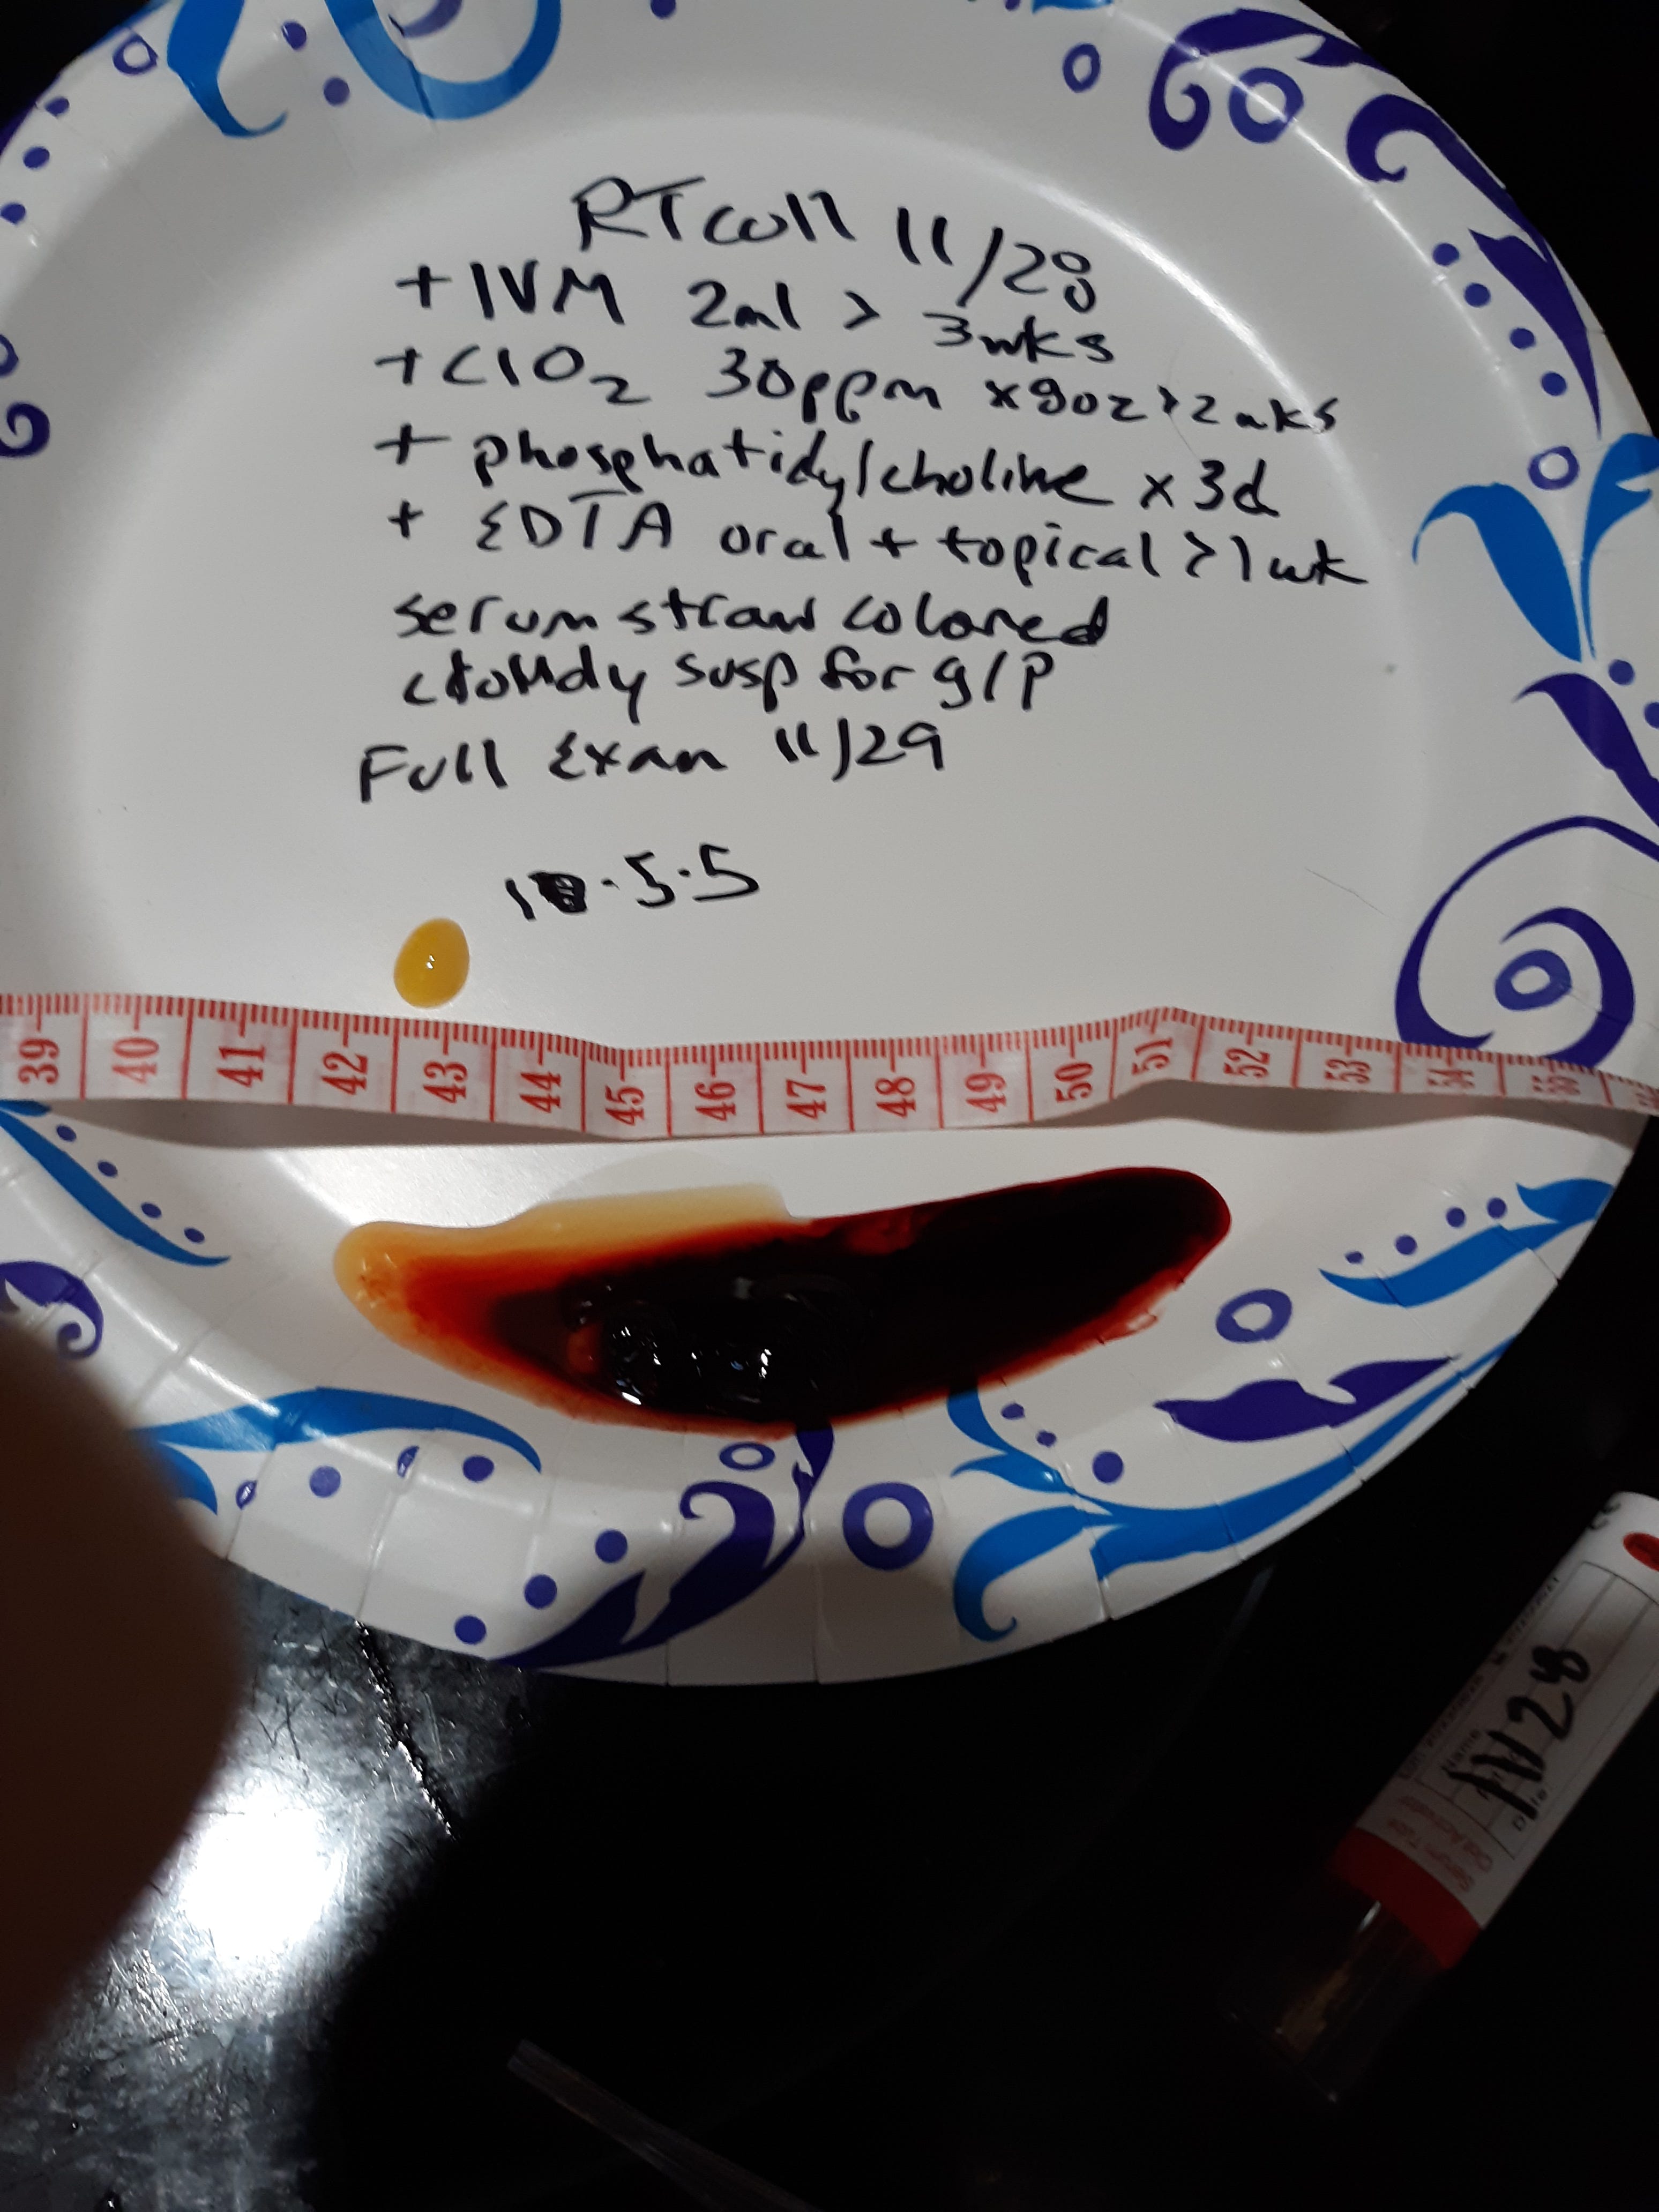 RT coll 11/28
+ IVM 2ml > 3wks
+ ClO2 30ppm x 9oz > 2wks
+ phosphatidylcholine x 3d
+ EDTA oral + topical > 1wk
serum straw colored
cloudy susp for g/p
Full Exam 11/29
.5.5
39 40 41 42 43 44 45 46 47 48 49 50 51 52 53 54 55
Serum Tube
Clot Activator
Name
Date
11/28